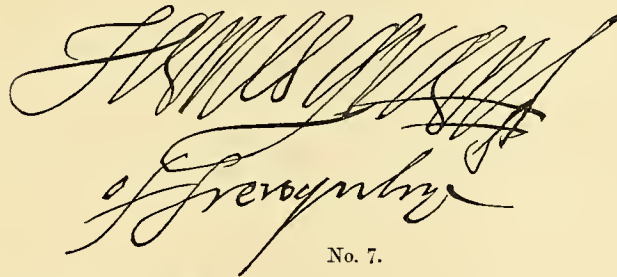 James Grant
of Frewquhye
No. 7.